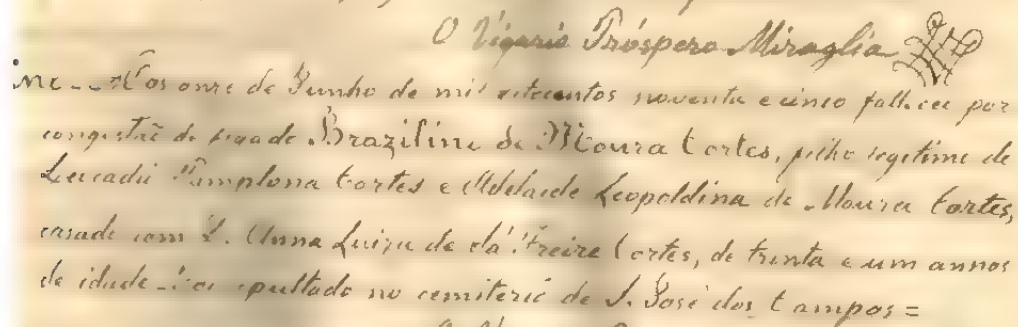 O Vigario Próspero Miraglia
Aos onze de Junho de mil oitocentos noventa e cinco falleceu por
congestão do figado Brazilino de Moura Cortes, filho legitimo de
Leucadio Pamplona Cortes e Adelaide Leopoldina de Moura Cortes,
casado com D. Anna Luiza de Sá Freire Cortes, de trinta e um annos
de idade. Foi sepultado no cemiterio de S. José dos Campos =